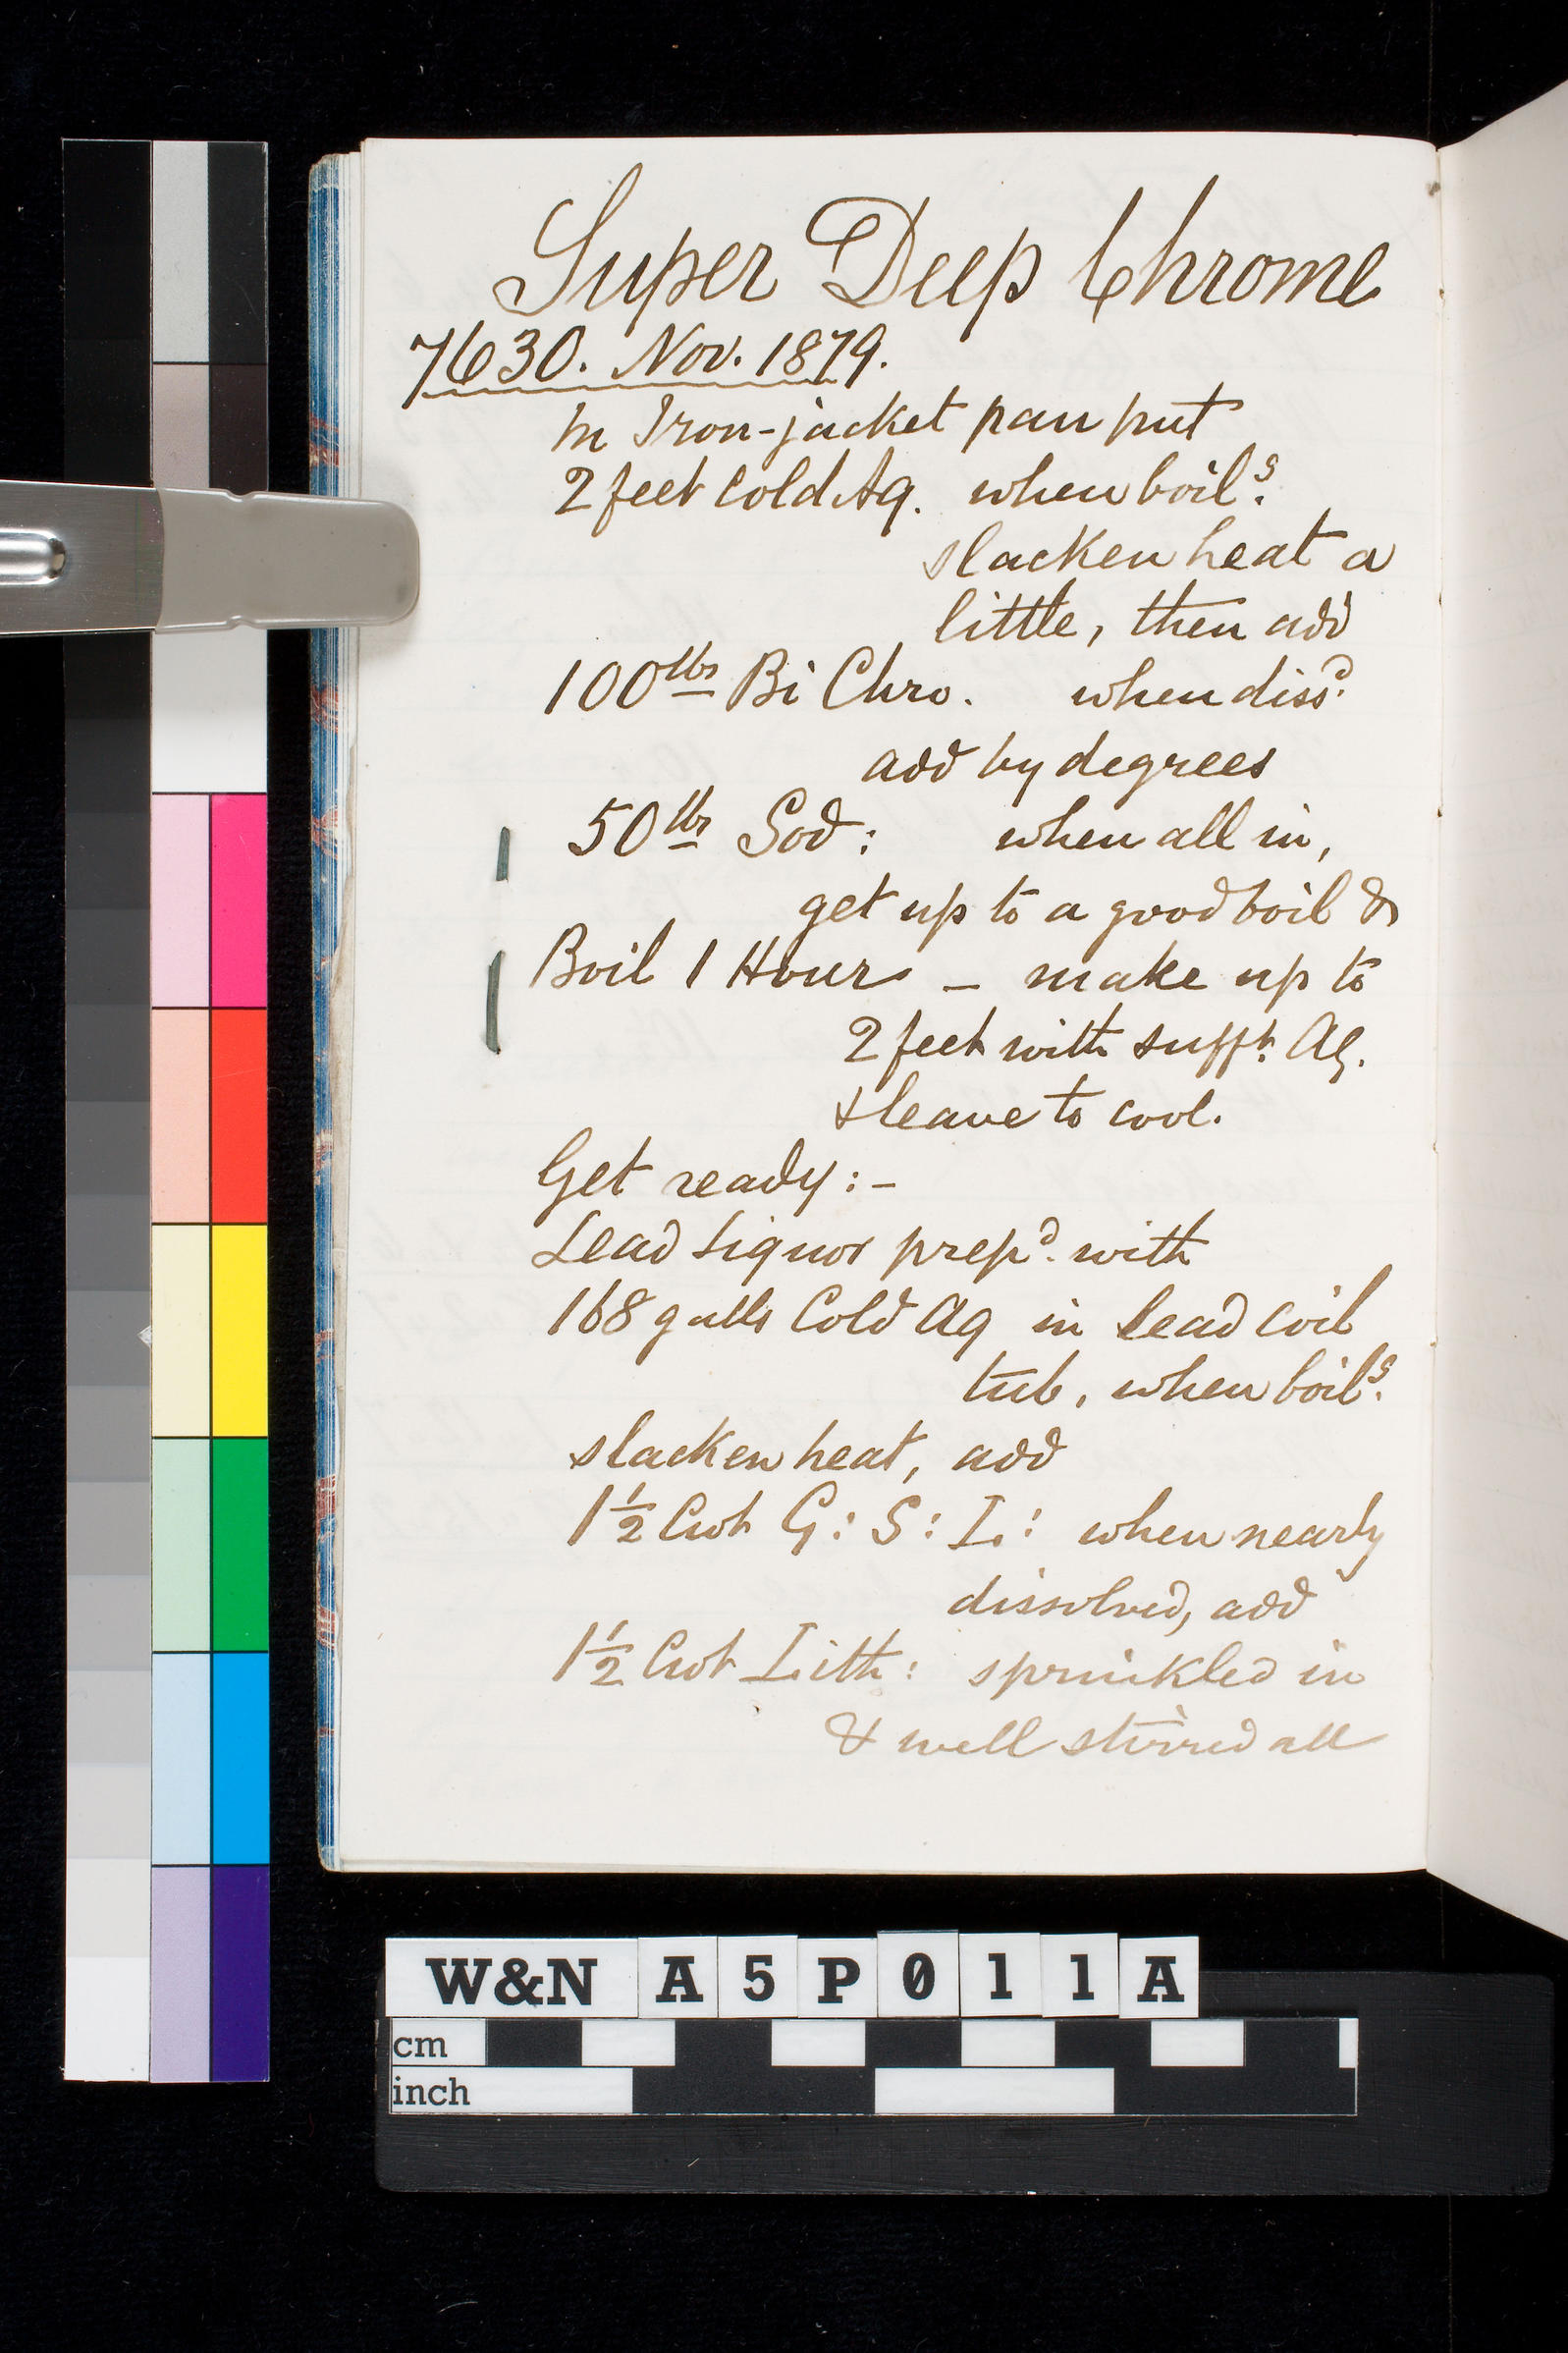 Super Deep Chrome
7630. Nov. 1879.
In Iron-jacket pan put
2 feet Cold Aq. when boils.
slacken heat a
little, then add
100lbs Bi Chro. when dissd.
add by degrees
50lbs Sod: when all in,
get up to a good boil &
Boil 1 Hour - make up to
2 feet with sufft. Aq.
& leave to cool.
Get ready:-
Lead Liquor prepd. with
168 galls Cold Aq in Lead Coil
tub, when boils.
slacken heat, add
1½ Cwt G: S: L: when nearly
dissolved, add
1½ Cwt Lith: sprinkled in
& well stirred all
W&N A5P011A
cm
inch